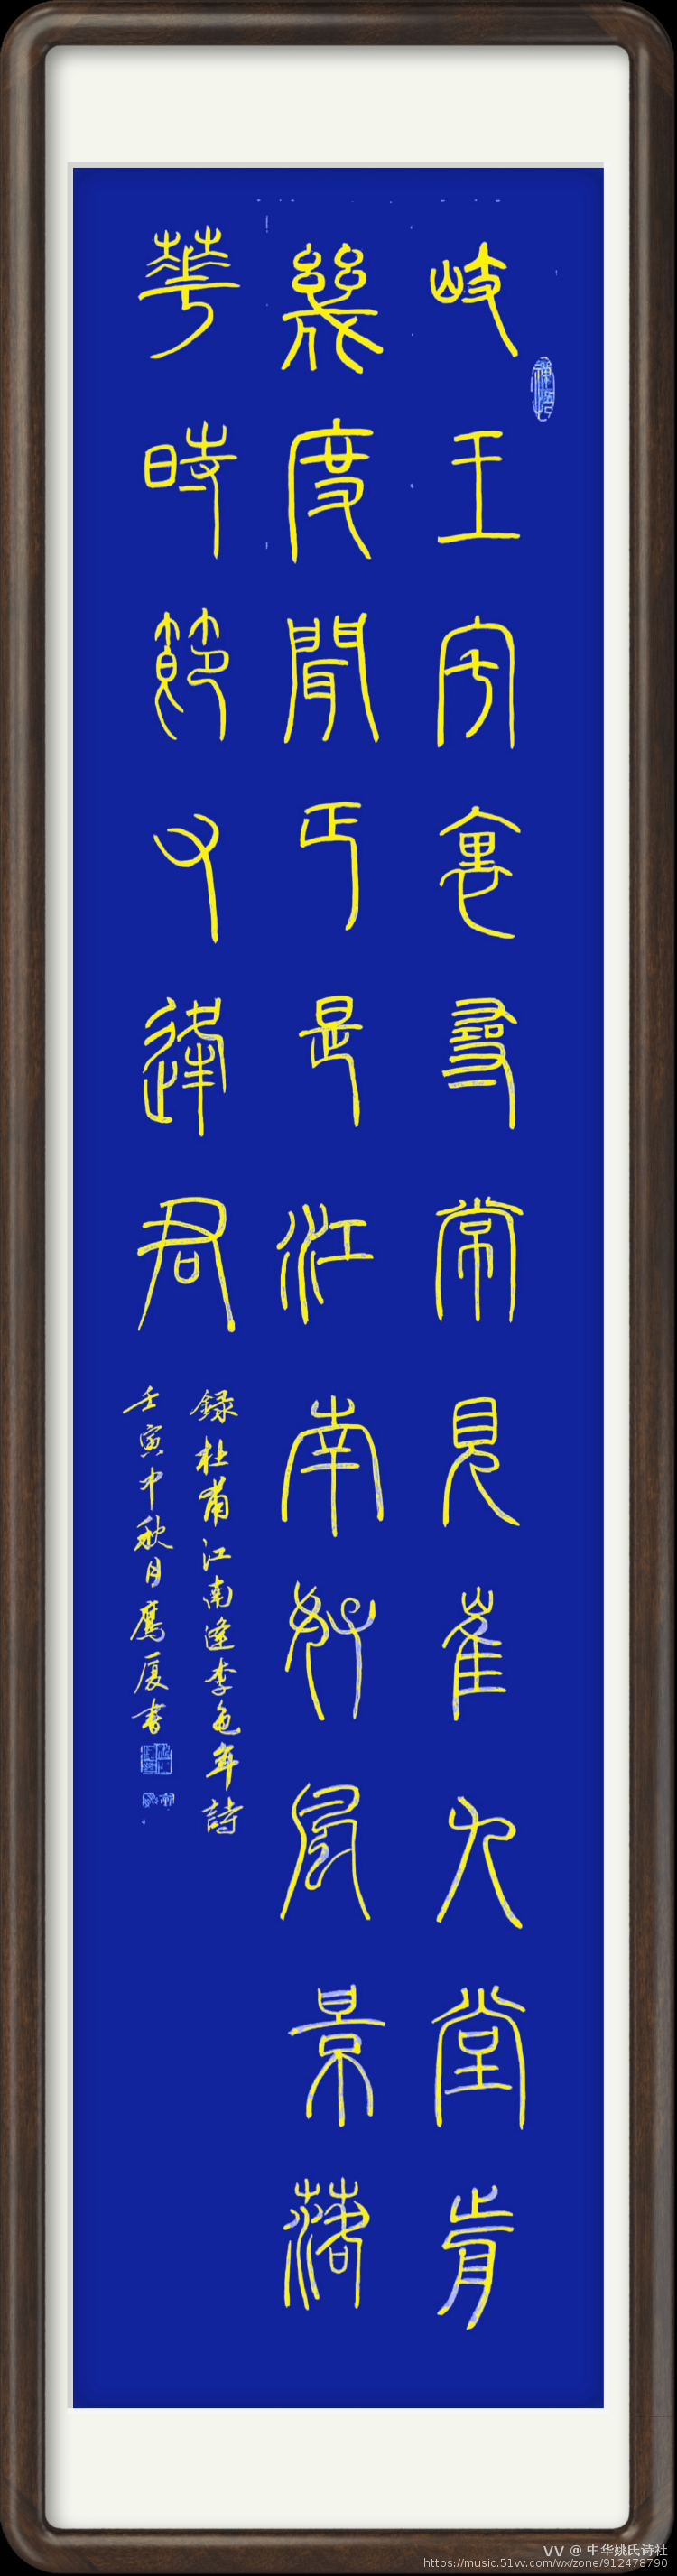 岐王宅裏尋常見崔九堂前
幾度聞正是江南好風景落
華時節又逢君
錄杜甫江南逢李龜年詩
壬寅中秋月鷹廈書
VV @ 中华姚氏诗社
https://music.51vv.com/wx/zone/912478790